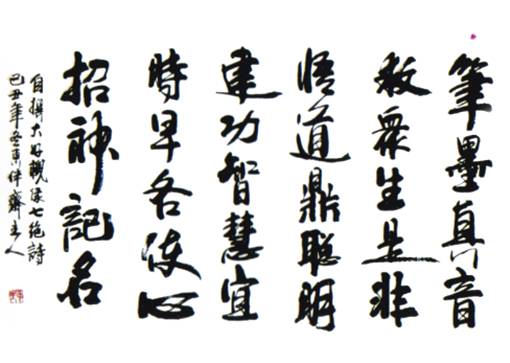 筆墨真音
救衆生是非
悟道鼎聰明
建功智慧宜
時早各使心
招神記名
自撰大好機緣七絶詩
己丑年冬伴齋主人